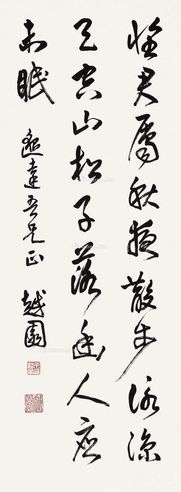 怀君属秋夜散步咏凉
天空山松子落幽人应
未眠
越园